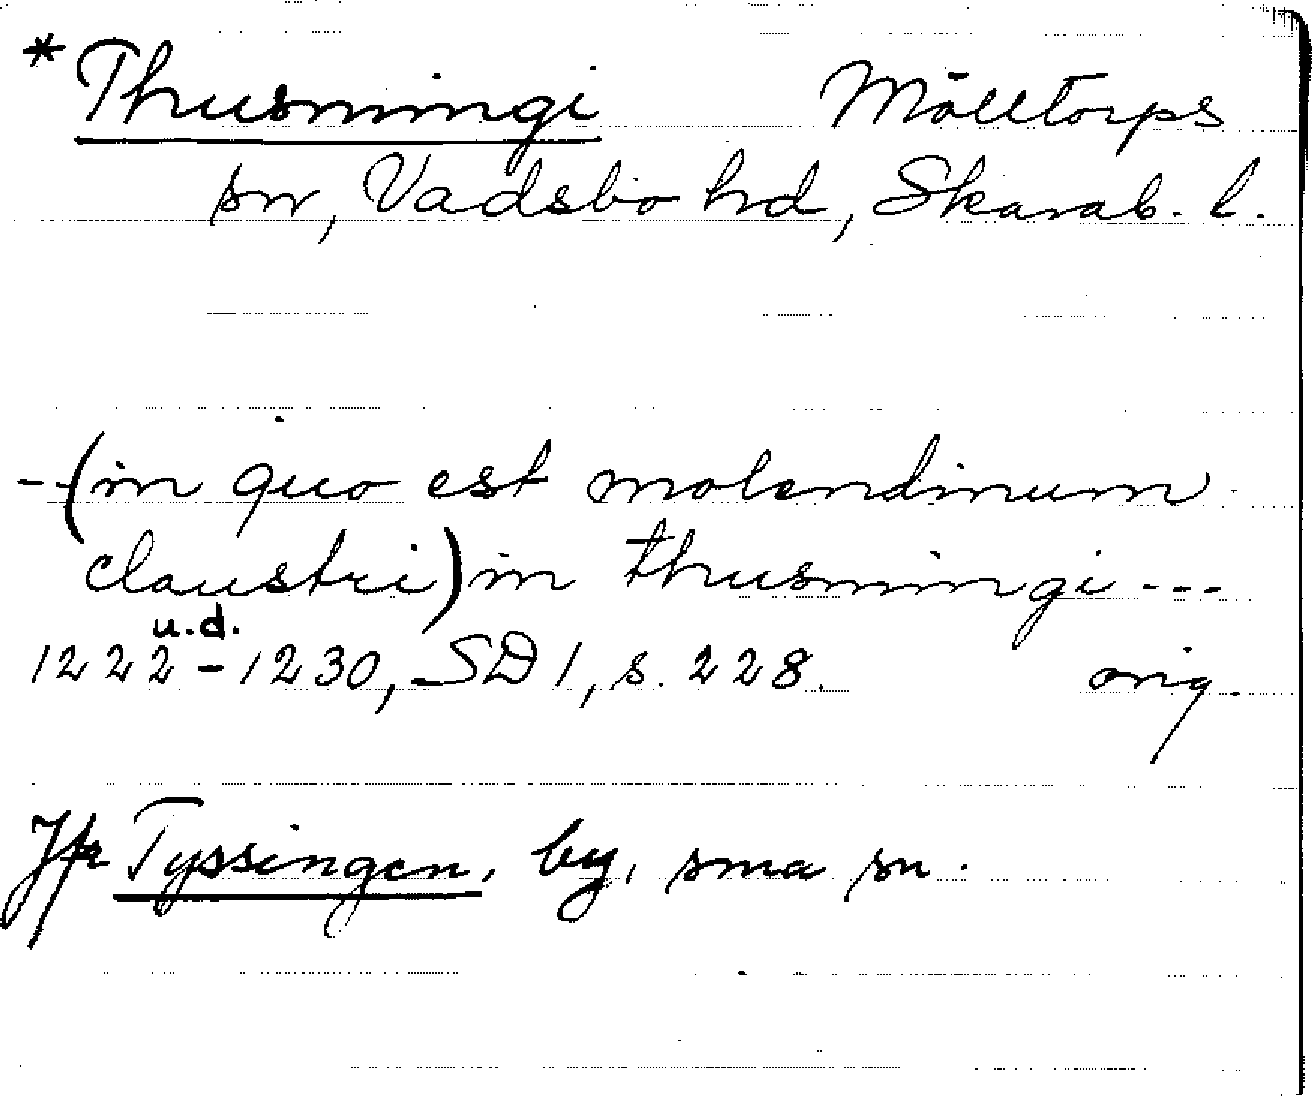 * Thusningi Mölltorps
sn, Vadsbo hd, Skarab. l.
-(in quo est molendinum
claustri) in thusningi ---
u.d.
1222-1230, SD 1, s. 228. orig.
Jfr Tyssingen, by, sma sn.